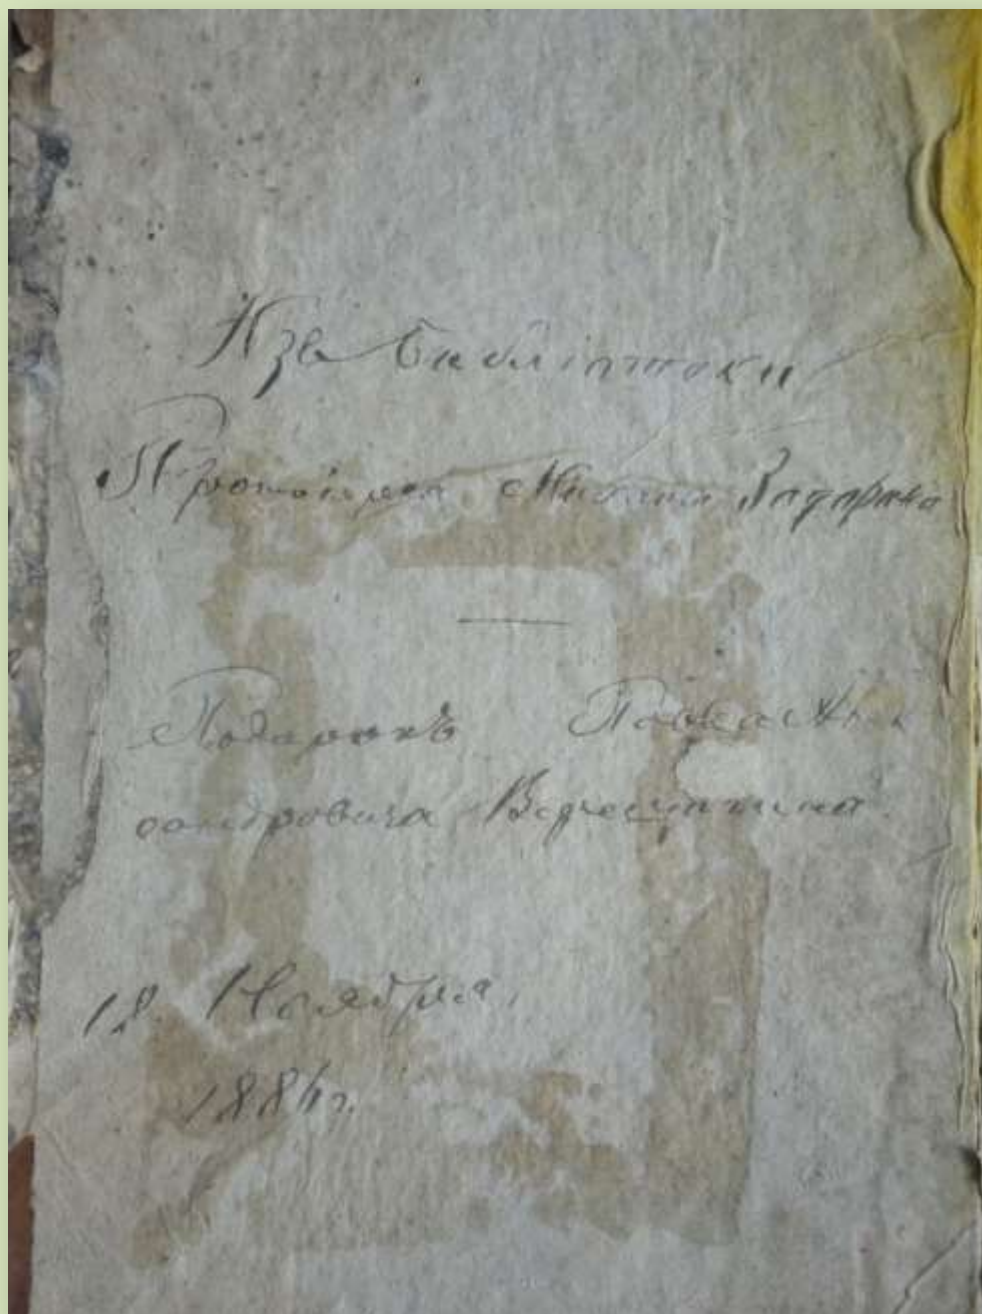 Изъ библіотеки
Протоіерея
Подарокъ Павла Алек
сандровича Верещагина.
18. Ноября,
1886 г.